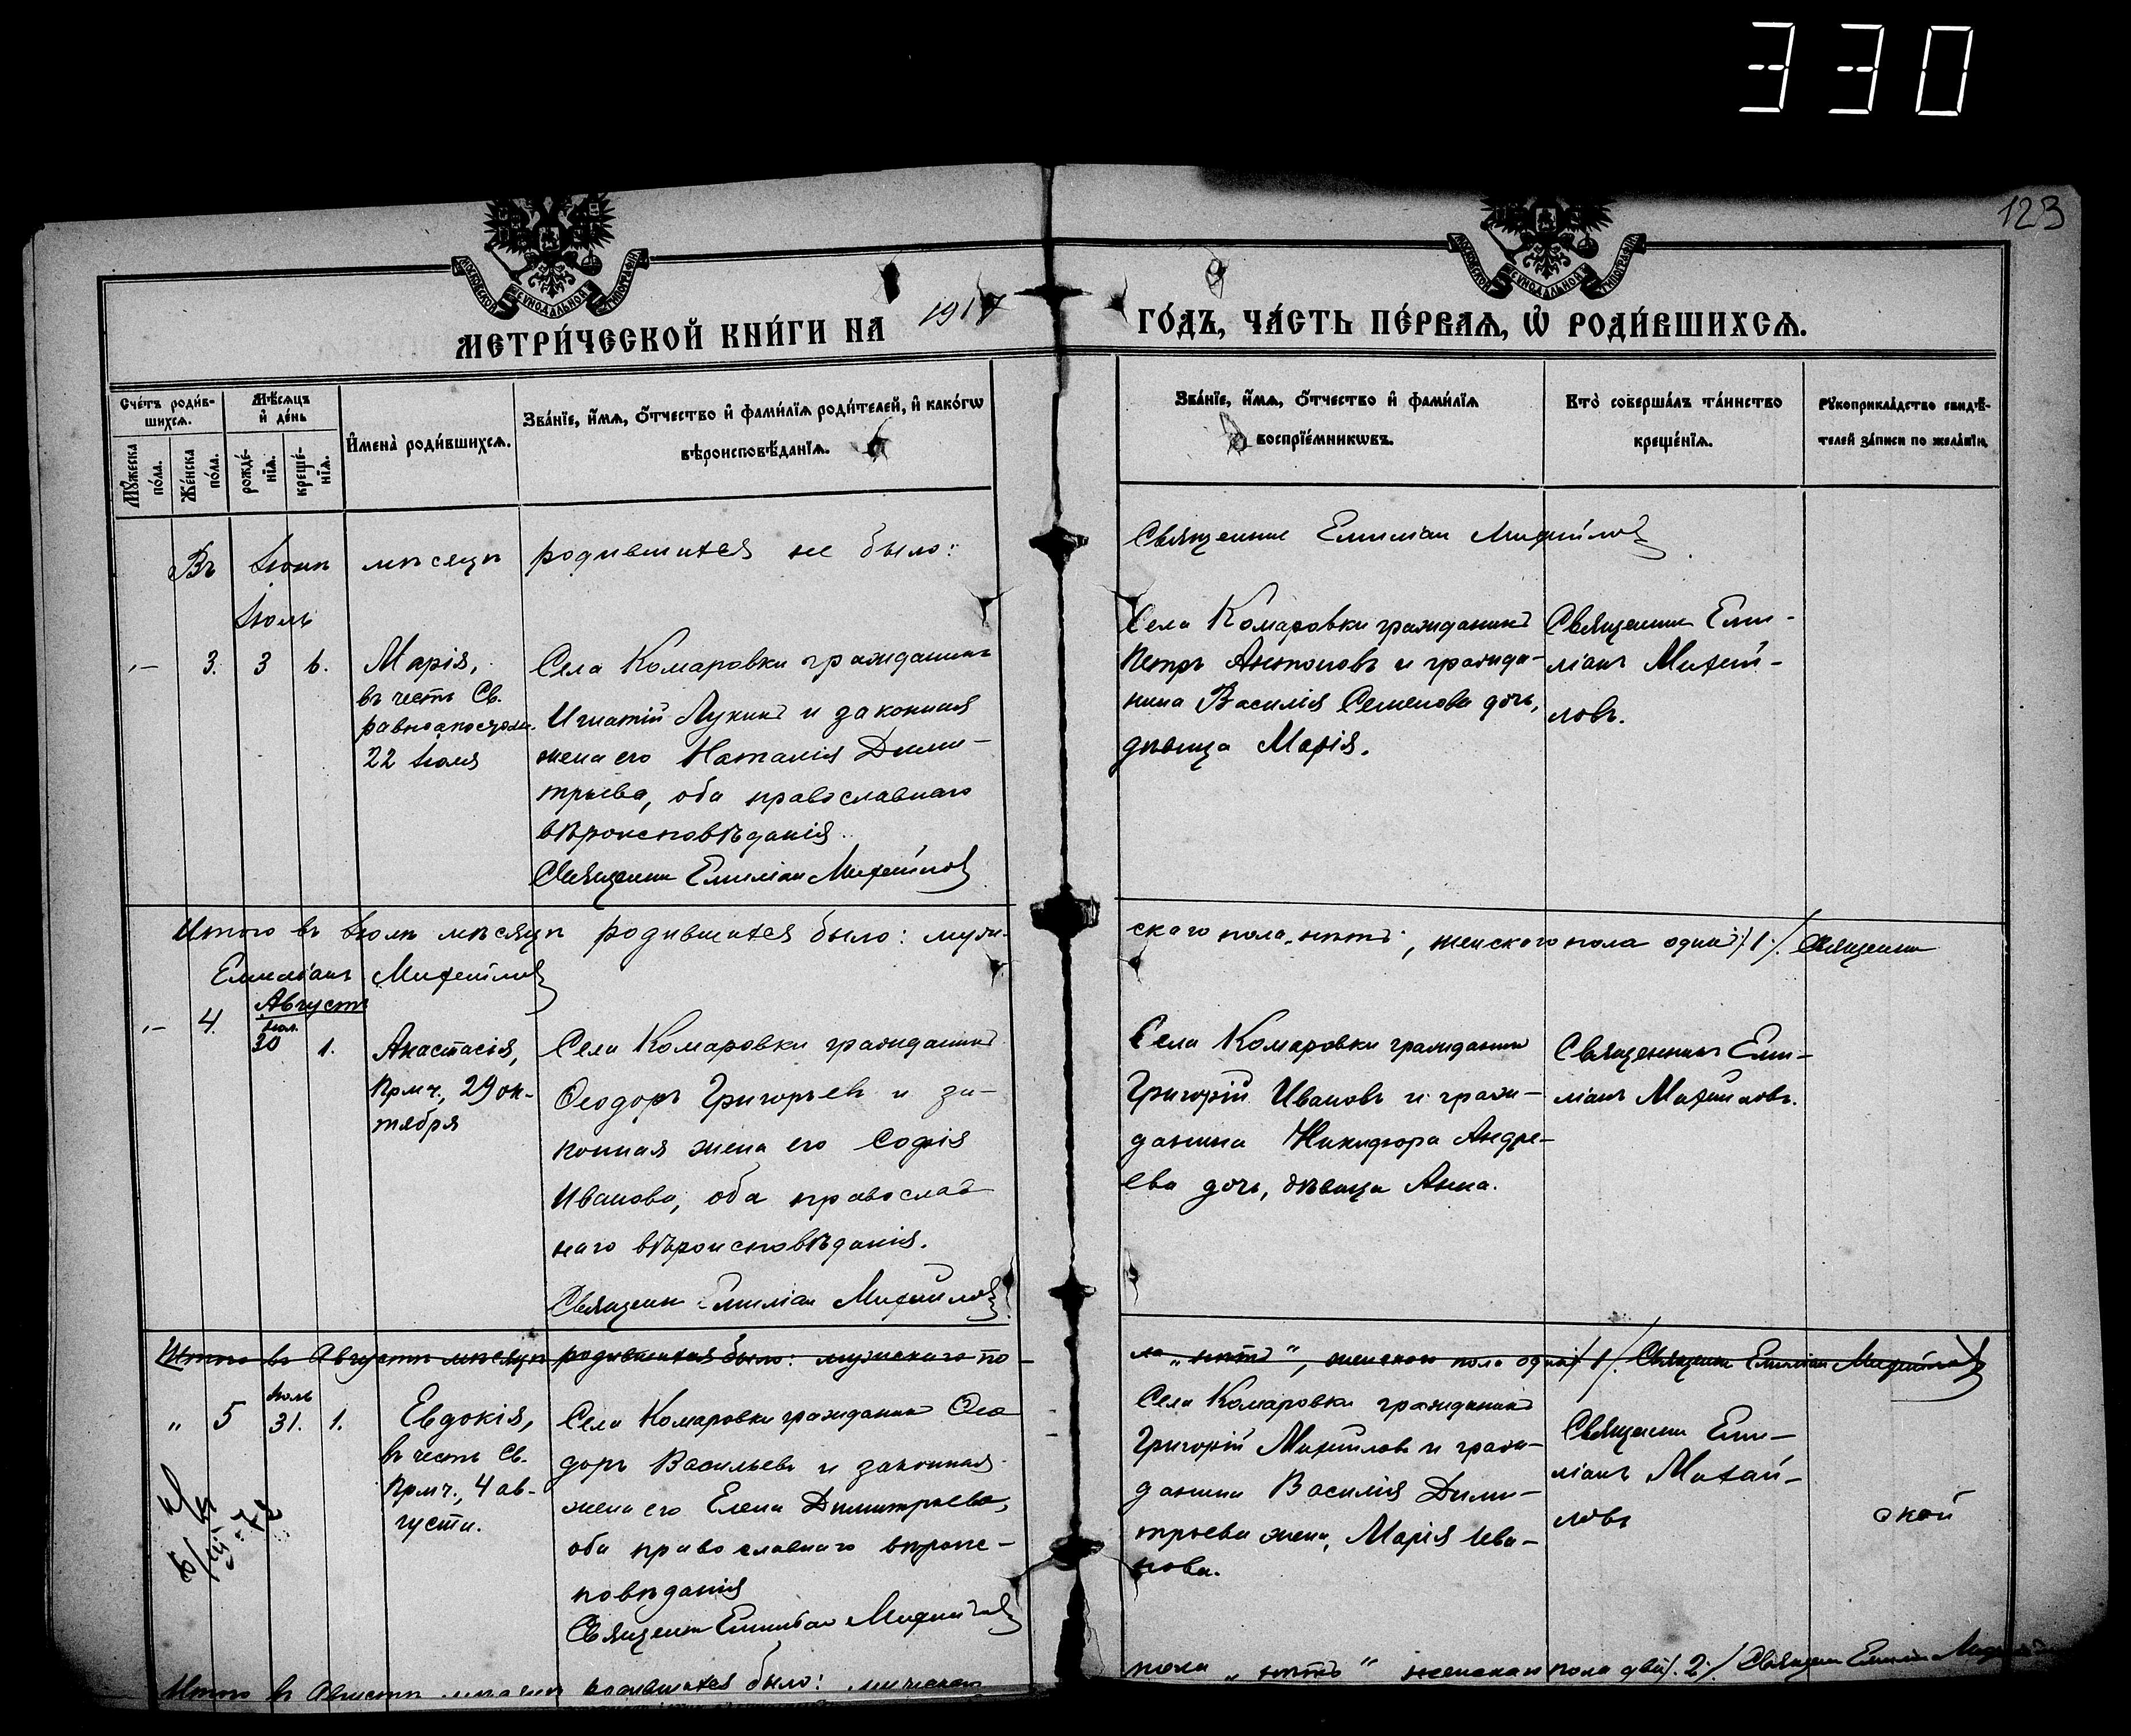 330
123
МОСКОВСКОЙ СѴНОДАЛЬНОЙ ТИПОГРАФІИ
МОСКОВСКОЙ СѴНОДАЛЬНОЙ ТИПОГРАФІИ
МЕТРИ́ЧЕСКОЙ КНИ́ГИ НА 1917 ГО́ДЪ, ЧА́СТЬ ПЕ́РВАѦ, Ѡ҆ РОДИ́ВШИХСѦ.
Сче́тъ роди́в-
шихсѧ.
Мѣ́сѧцъ
и҆ де́нь
Мꙋ́жеска
по́ла.
Же́нска
по́ла.
рожде́-
нїѧ.
креще́-
нїѧ.
И҆мена̀ роди́вшихсѧ.
Зва́нїе, и҆́мѧ, ѻ҆́тчество и҆ фами́лїѧ роди́телей, и҆ како́гѡ
вѣроисповѣ́данїѧ.
Зва́нїе, и҆́мѧ, ѻ҆́тчество и҆ фами́лїѧ
воспрїе́мникѡвъ.
Кто̀ соверша́лъ та́инство
креще́нїѧ.
Рꙋкоприкла́дство свидѣ́-
телей за́писи по жела́нїю.
Въ Іюнѣ мѣсяцѣ родившихся не было: Священник Емиліан Михайлов
Іюль
"– 3. 3 6.
Марія,
въ честь Св.
равноапостольн.
22 Іюля
Села Комаровки гражданинъ
Игнатій Лукинъ и законная
жена его Наталія Дими-
тріева, оба православнаго
вѣроисповѣданія.
Священник Емиліан Михайлов
Села Комаровки гражданинъ
Петръ Антоновъ и гражда-
нина Василія Семенова дочь,
дѣвица Марія.
Священник Еми-
ліанъ Михай-
ловъ.
Итого въ Іюлѣ мѣсяцѣ родившихся было: муж-
скаго пола „нѣтъ", женскаго пола одинъ /1/. Священник
Емиліанъ Михайлов
Августъ
"– 4. Іюл. 30 1.
Анастасія,
Прмч., 29 ок-
тября
Села Комаровки гражданинъ
Ѳеодоръ Григорьевъ и за-
конная жена его Софія
Иванова, оба православ-
наго вѣроисповѣданія.
Священник Емиліан Михайлов
Села Комаровки гражданинъ
Григорій Ивановъ и граж-
данина Никифора Андре-
ева дочь, дѣвица Анна.
Священникъ Еми-
ліанъ Михайловъ.
Итого въ Августѣ мѣсяцѣ родившихся было: мужскаго по-
ла „нѣтъ", женскаго пола одинъ /1/. Священник Емиліан Михайлов
„ 5 Іюль 31. 1.
Евдокія,
въ честь Св.
Прмч., 4 ав-
густа.
Села Комаровки гражданинъ Ѳео
доръ Васильевъ и законная
жена его Елена Димитріева,
оба православнаго вѣроис-
повѣданія
Священник Емиліан Михайлов
Села Комаровки гражданинъ
Григорій Михайловъ и граж-
данина Василія Дими-
тріева жена, Марія Ива-
нова.
Священник Еми-
ліанъ Михай-
ловъ
Итого въ Августѣ мѣсяцѣ родившихся было: мужскаго
пола „нѣтъ" женскаго пола двѣ /2/ Священник Емиліан Михайлов